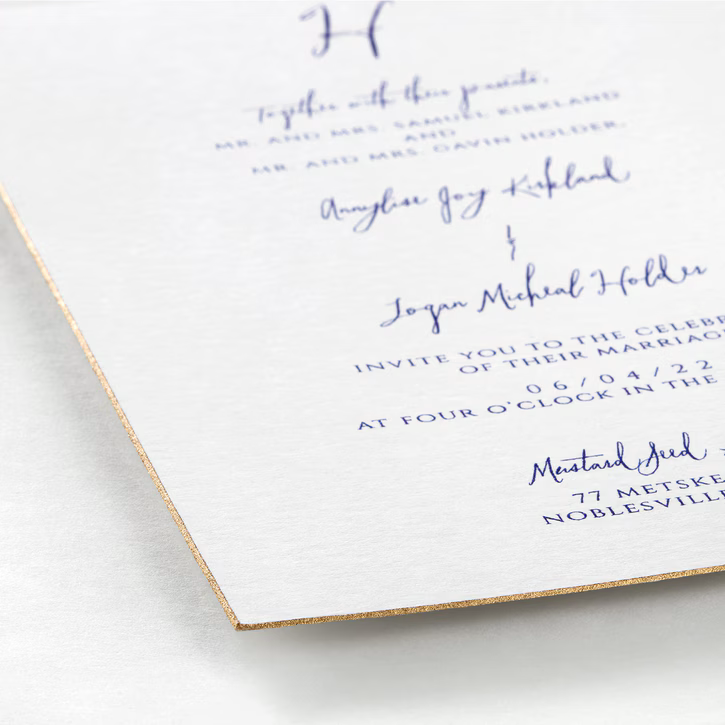 H
Together with their parents,
MR. AND MRS. SAMUEL KIRKLAND
AND
MR. AND MRS. GAVIN HOLDER,
Annylise Joy Kirkland
&
Logan Micheal Holder
INVITE YOU TO THE CELEB
OF THEIR MARRIAG
06/04/22
AT FOUR O'CLOCK IN THE
Mustard Seed
77 METSKE
NOBLESVILLE